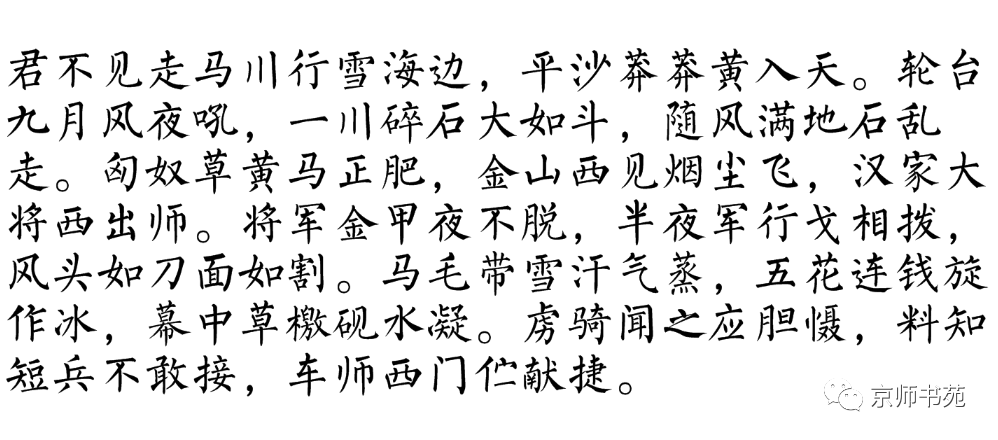 君不见走马川行雪海边，平沙莽莽黄入天。轮台
九月风夜吼，一川碎石大如斗，随风满地石乱
走。匈奴草黄马正肥，金山西见烟尘飞，汉家大
将西出师。将军金甲夜不脱，半夜军行戈相拨，
风头如刀面如割。马毛带雪汗气蒸，五花连钱旋
作冰，幕中草檄砚水凝。虏骑闻之应胆慑，料知
短兵不敢接，车师西门伫献捷。
京师书苑